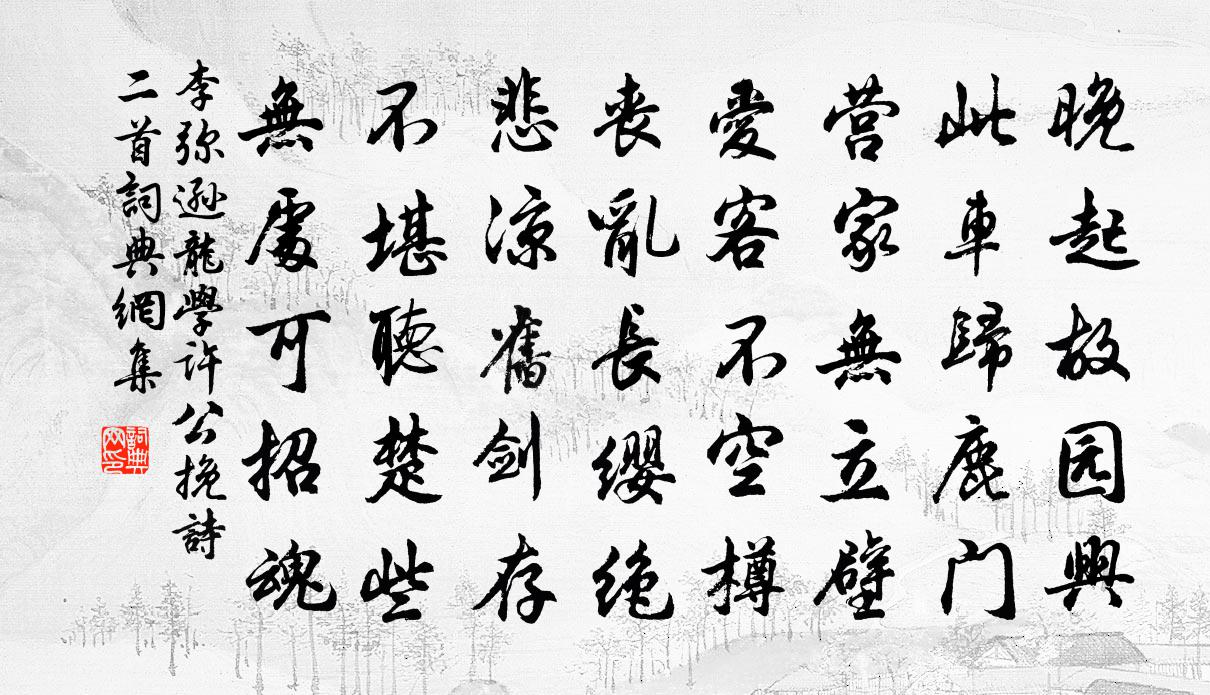 晚起故园興
此車歸鹿门
营家無立壁
愛客不空樽
丧亂长缨绝
悲涼舊剑存
不堪聽楚些
無處可招魂
李弥遜龍學许公挽詩
二首詞典網集
詞典网印